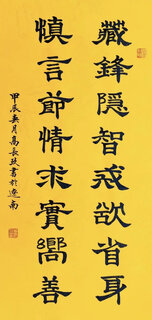 藏鋒隱智戒欲省身
慎言節情求實嚮善
甲辰癸月高長延書於遼南